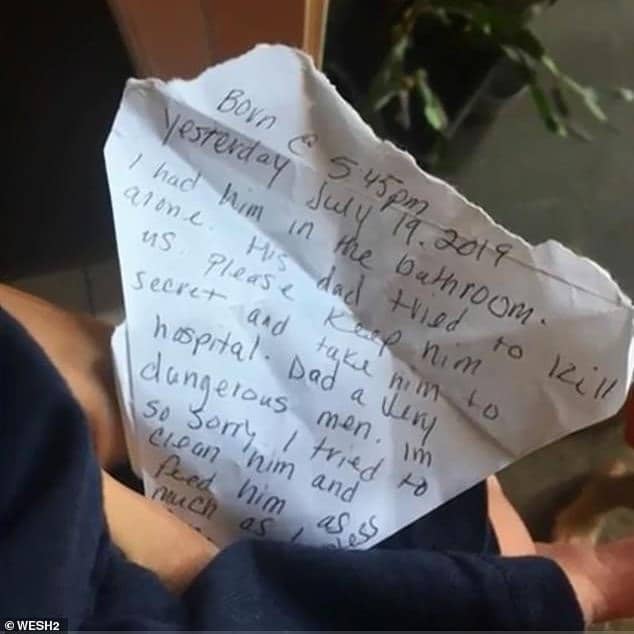 Born @ 545pm
Yesterday July 19. 2019
I had him in the bathroom.
alone. His dad tried to kill
us. please keep him
secret and take him to
hospital. Dad a Very
dangerous men. Im
so sorry, I tried to
clean him and
feed him as
much as I
© WESH2